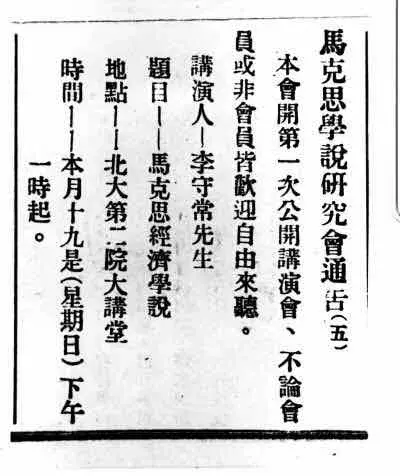 馬克思學說研究會通告(五)
本會開第一次公開講演會、不論會
員或非會員皆歡迎自由來聽。
講演人—李守常先生
題目——馬克思經濟學說
地點——北大第二院大講堂
時間——本月十九是(星期日)下午
一時起。